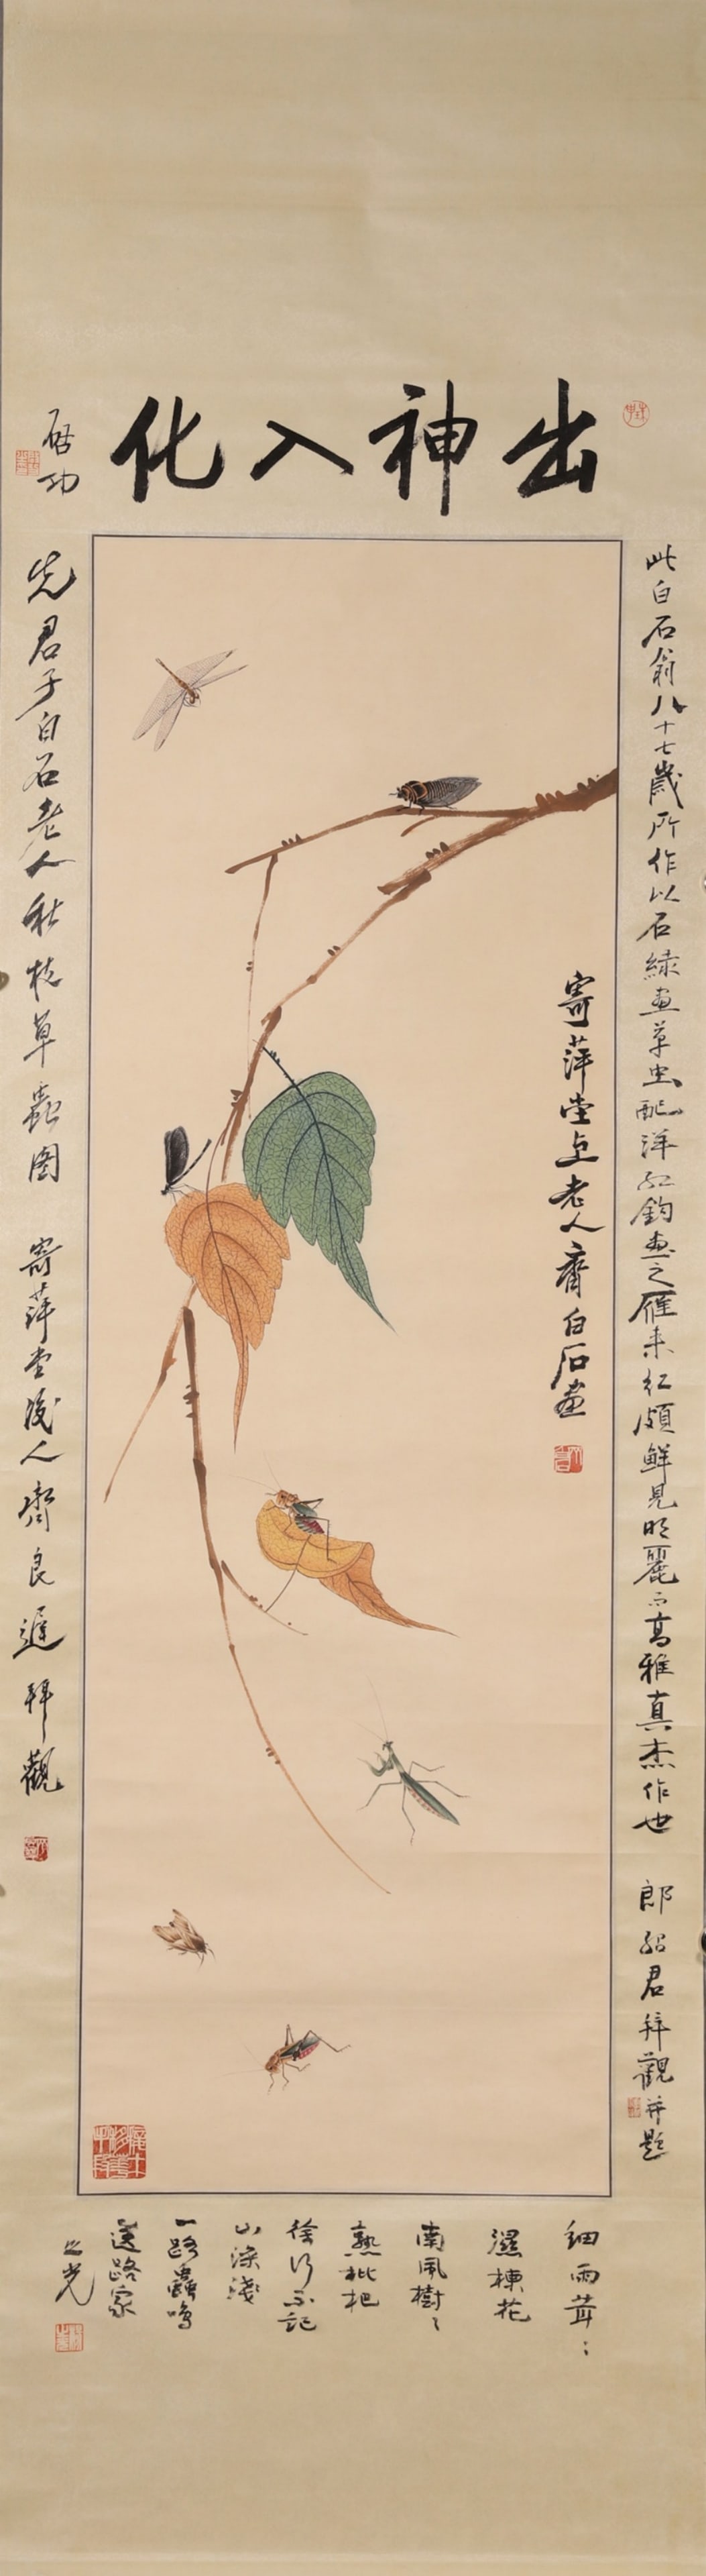 出神入化
启功
此白石翁八十七歲所作以石綠画草虫配洋红鈎画之雁来红頗鮮見明麗而高雅真杰作也
郎紹君拜觀并題
寄萍堂上老人齊白石画
先君子白石老人秋枝草蟲图
寄萍堂後人齊良遲拜觀
細雨茸〻
濕楝花
南風樹〻
熟枇杷
徐行不記
山深淺
一路蟲鳴
送路家